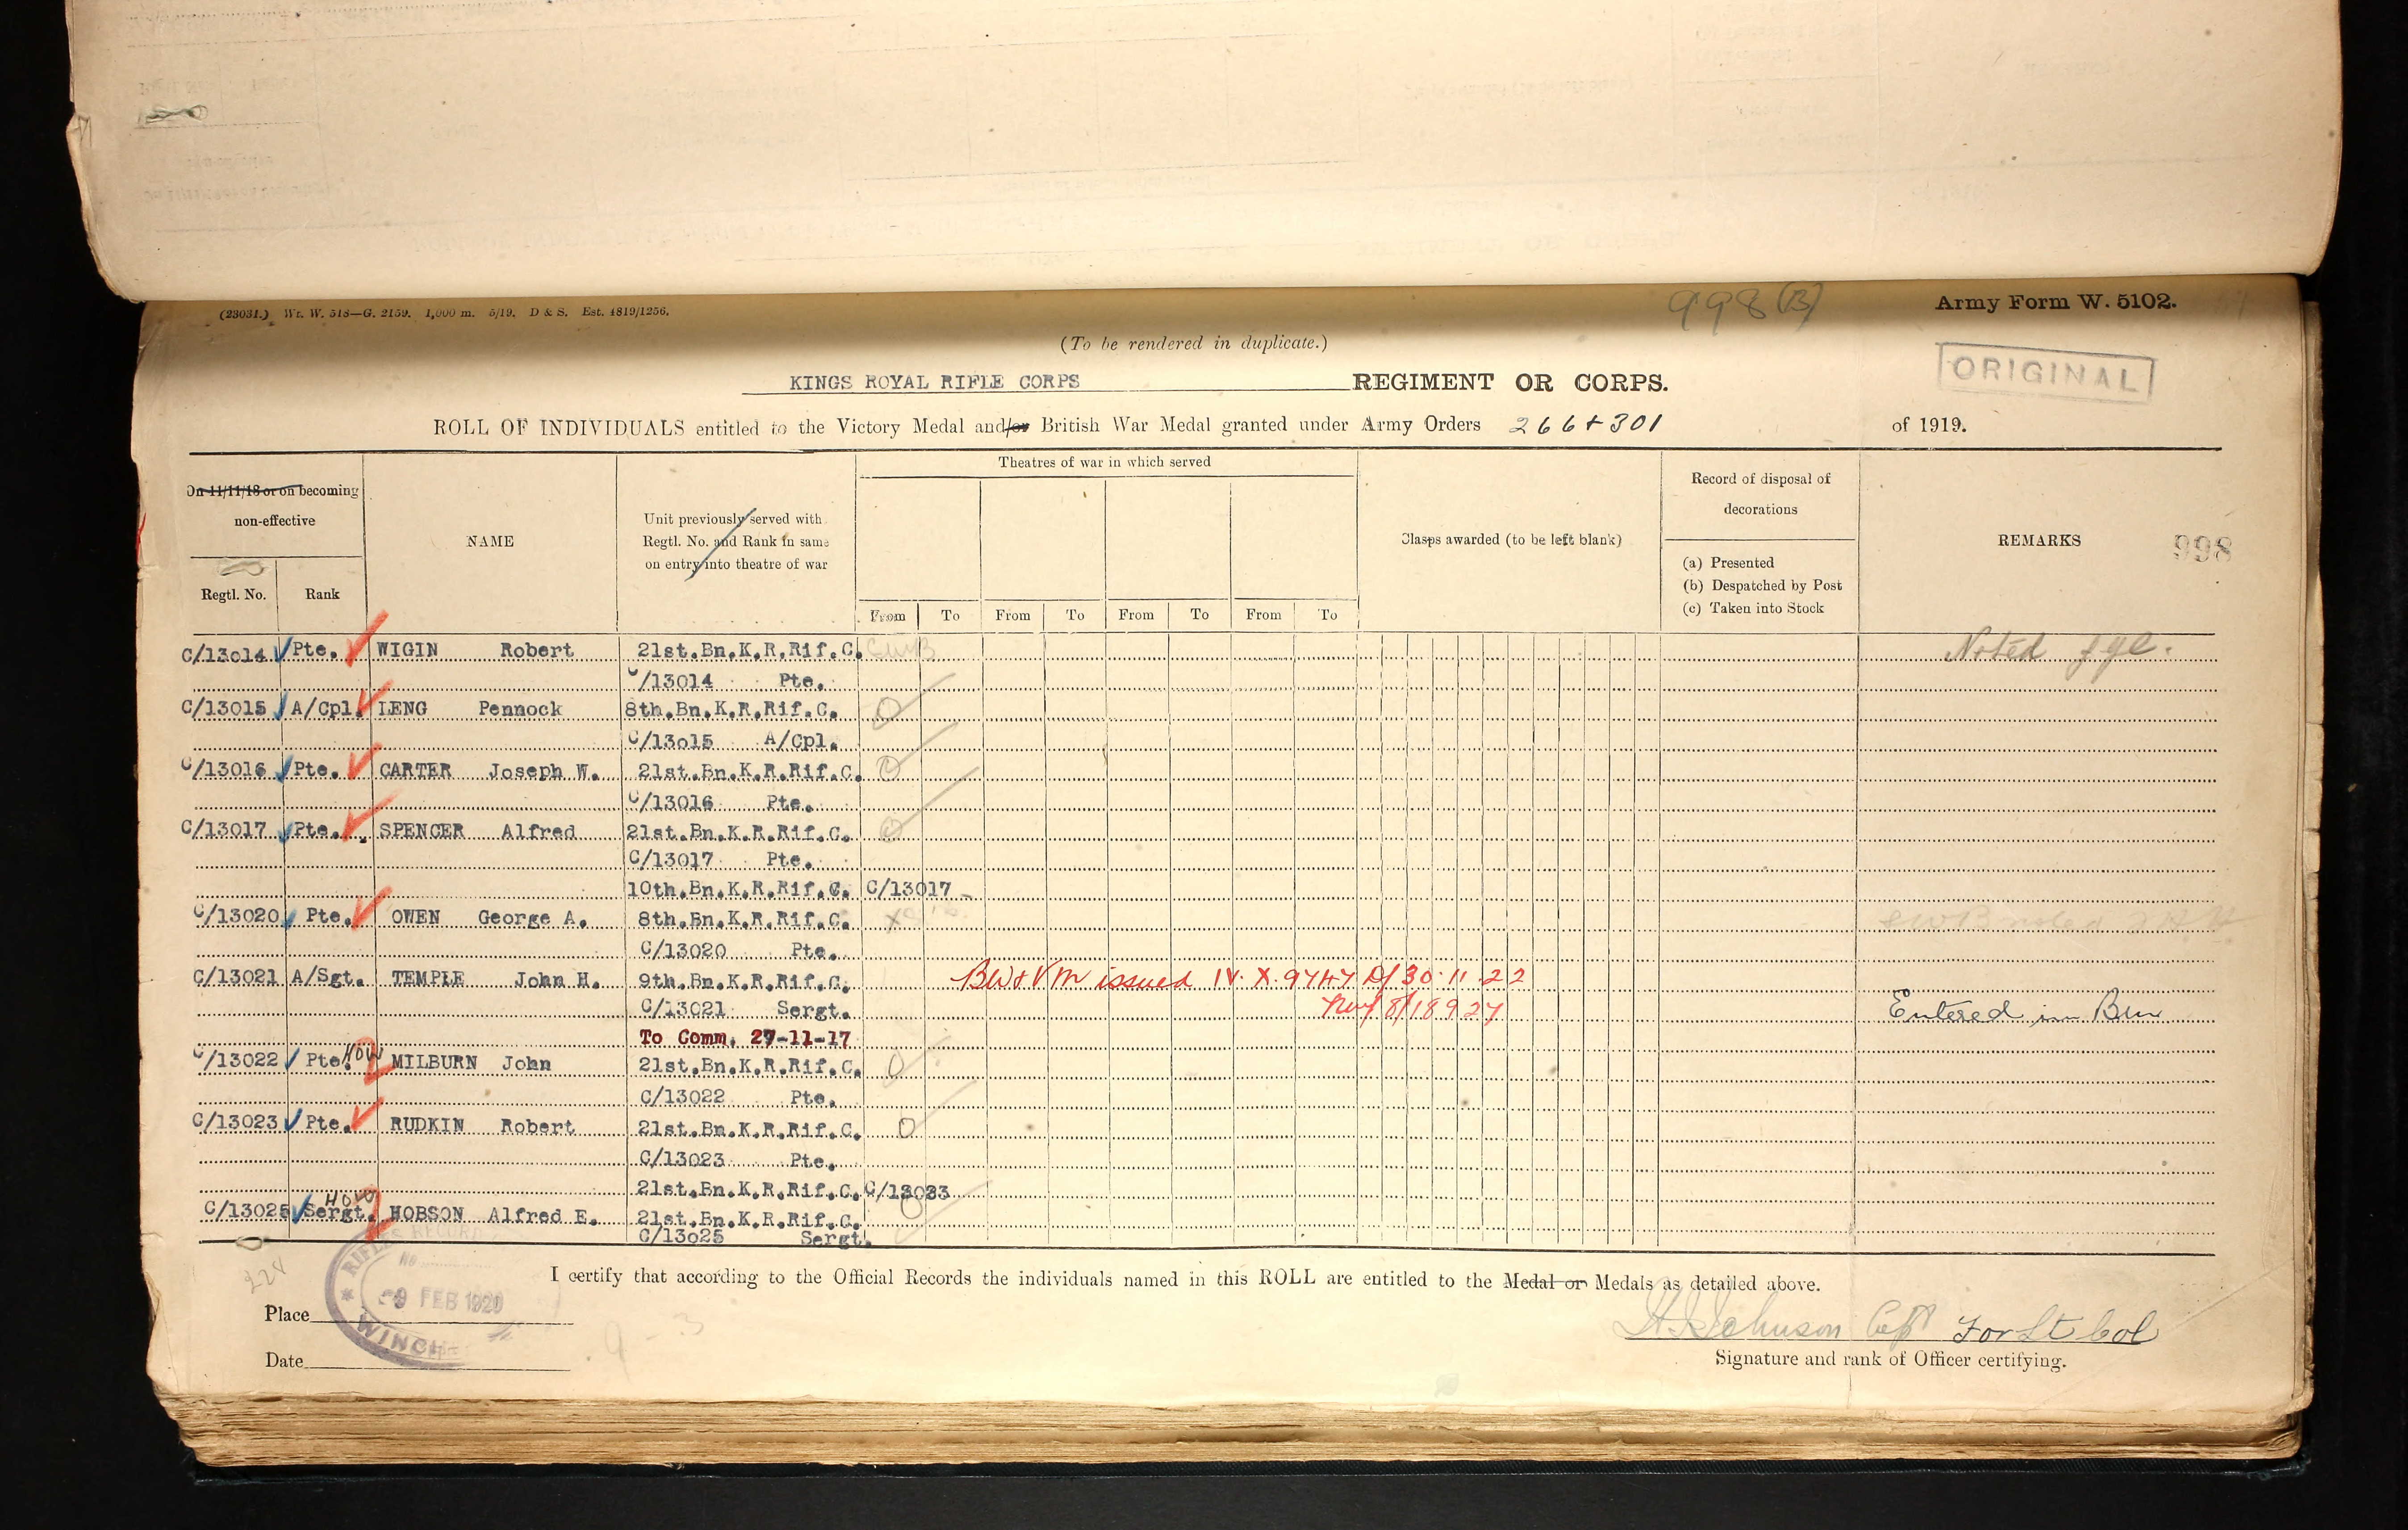 (23031.) Wt. W. 518—G. 2159. 1,000 m. 5/19. D & S. Est. 4819/1256.
998(B)
Army Form W. 5102.
(To be rendered in duplicate.)
ORIGINAL
KINGS ROYAL RIFLE CORPS REGIMENT OR CORPS.
ROLL OF INDIVIDUALS entitled to the Victory Medal and/or British War Medal granted under Army Orders 266+301 of 1919.
On 11/11/18 or on becoming non-effective
Regtl. No.
Rank
NAME
Unit previously served with Regtl. No. and Rank in same on entry into theatre of war
Theatres of war in which served
From To From To From To From To
Clasps awarded (to be left blank)
Record of disposal of decorations
(a) Presented
(b) Despatched by Post
(c) Taken into Stock
REMARKS
998
C/13014 Pte. WIGIN Robert 21st.Bn.K.R.Rif.C. Noted
C/13014 Pte.
C/13015 A/Cpl. LENG Pennock 8th.Bn.K.R.Rif.C. O
C/13015 A/Cpl.
C/13016 Pte. CARTER Joseph W. 21st.Bn.K.R.Rif.C. O
C/13016 Pte.
C/13017 Pte. SPENCER Alfred 21st.Bn.K.R.Rif.C. O
C/13017 Pte.
10th.Bn.K.R.Rif.C. C/13017 -
C/13020 Pte. OWEN George A. 8th.Bn.K.R.Rif.C. X SWB noted
C/13020 Pte.
C/13021 A/Sgt. TEMPLE John H. 9th.Bn.K.R.Rif.C. BW+VM issued IV. X. 9747 D/30.11.22
C/13021 Sergt. 8/18927 Entered in
To Comm. 27-11-17
C/13022 Pte. HOW 2 MILBURN John 21st.Bn.K.R.Rif.C. O
C/13022 Pte.
C/13023 Pte. RUDKIN Robert 21st.Bn.K.R.Rif.C. O
C/13023 Pte.
21st.Bn.K.R.Rif.C. C/13023
C/13025 Sergt. HOW 2 HOBSON Alfred E. 21st.Bn.K.R.Rif.C. O
C/13025 Sergt.
I certify that according to the Official Records the individuals named in this ROLL are entitled to the Medal or Medals as detailed above.
224
RIFLES RECORD
No
9 FEB 1920
WINCH
Place
9-3
Johnson Capt For Lt Col
Date
Signature and rank of Officer certifying.